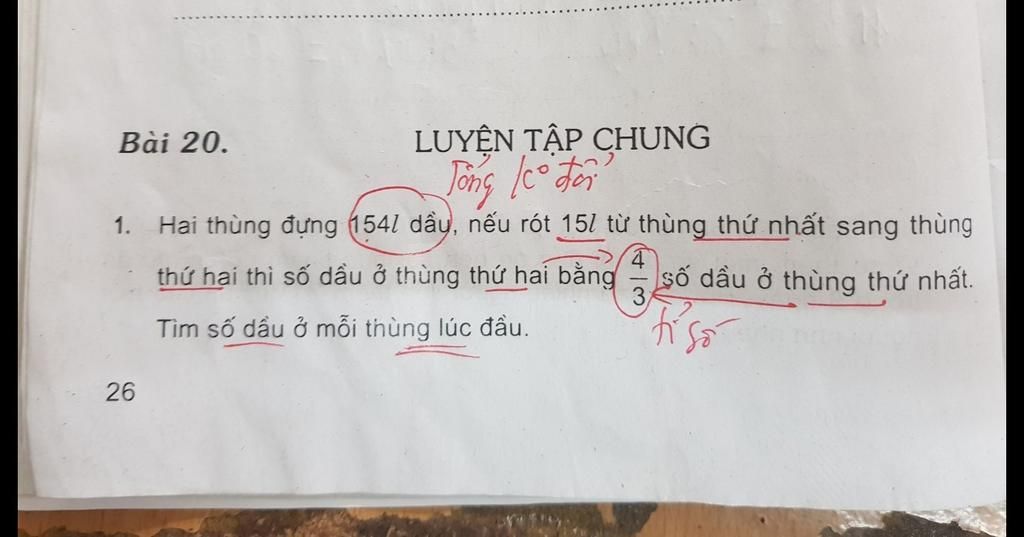 Bài 20. LUYỆN TẬP CHUNG
Tổng ko đổi
1. Hai thùng đựng 154l dầu, nếu rót 15l từ thùng thứ nhất sang thùng
thứ hai thì số dầu ở thùng thứ hai bằng 4/3 số dầu ở thùng thứ nhất.
tỉ số
Tìm số dầu ở mỗi thùng lúc đầu.
26